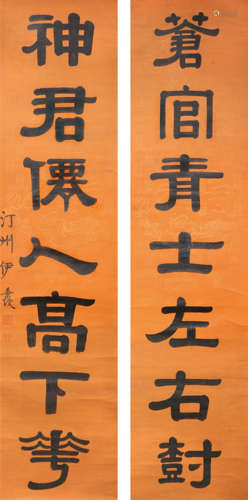 蒼官青士左右封
神君僊人高下花
汀州伊秉綬